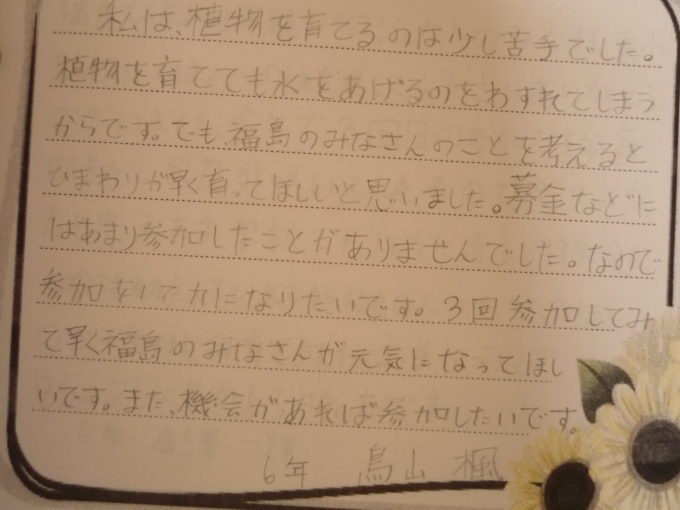 私は、植物を育てるのは少し苦手でした。
植物を育てても水をあげるのをわすれてしまう
からです。でも、福島のみなさんのことを考えると
ひまわりが早く育ってほしいと思いました。募金などに
はあまり参加したことがありませんでした。なので
参加をして力になりたいです。3回参加してみ
て早く福島のみなさんが元気になってほし
いです。また、機会があれば参加したいです。
6年 鳥山 楓